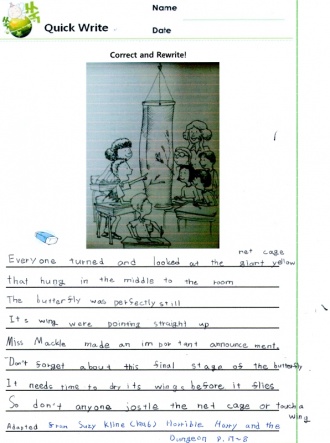 Name
Quick Write
Date
Correct and Rewrite!
net cage
Everyone turned and looked at the giant yellow
that hung in the middle to the room
The butterfly was perfectly still
It s wing were pointing straight up
Miss Mackle made an im por tant announce ment.
"Don't forget about this final stage of the butterfly
It needs time to dry its wings before it flies
So don't anyone jostle the net cage or touch a
wing
Adapted from Suzy Kline (1996) Horrible Harry and the
Dungeon P. 17~8